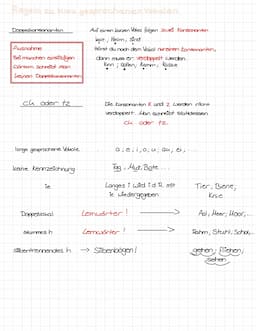 Regeln zu kurz gesprochenen Vokalen
Doppelkonsonanten
Auf einen kurzen Vokal folgen zwei Konsonanten
Hörst du nach dem Vokal nur einen Konsonanten,
dann muss er verdoppelt werden.
Ausnahme:
Bei manchen einsilbigen
Wörtern schreibt man
keinen Doppelkonsonanten
ck oder tz
Die Konsonanten K und Z werden nicht
verdoppelt. Man schreibt stattdessen
ck oder tz
lang gesprochene Vokale
a, e, i, o, u, au, ei, ...
keine Kennzeichnung
Tag, Mut, Bote...
ie
Langes i wird i.d.R. mit
ie wiedergegeben
Tier, Biene,
Knie
Doppelvokal
Lernwörter!
Aal, Meer, Moor,...
stummes h
Lernwörter!
Rahm, Stuhl, Schal...
silbentrennendes h
Silbenbögen!
gehen, fliehen,
sehen